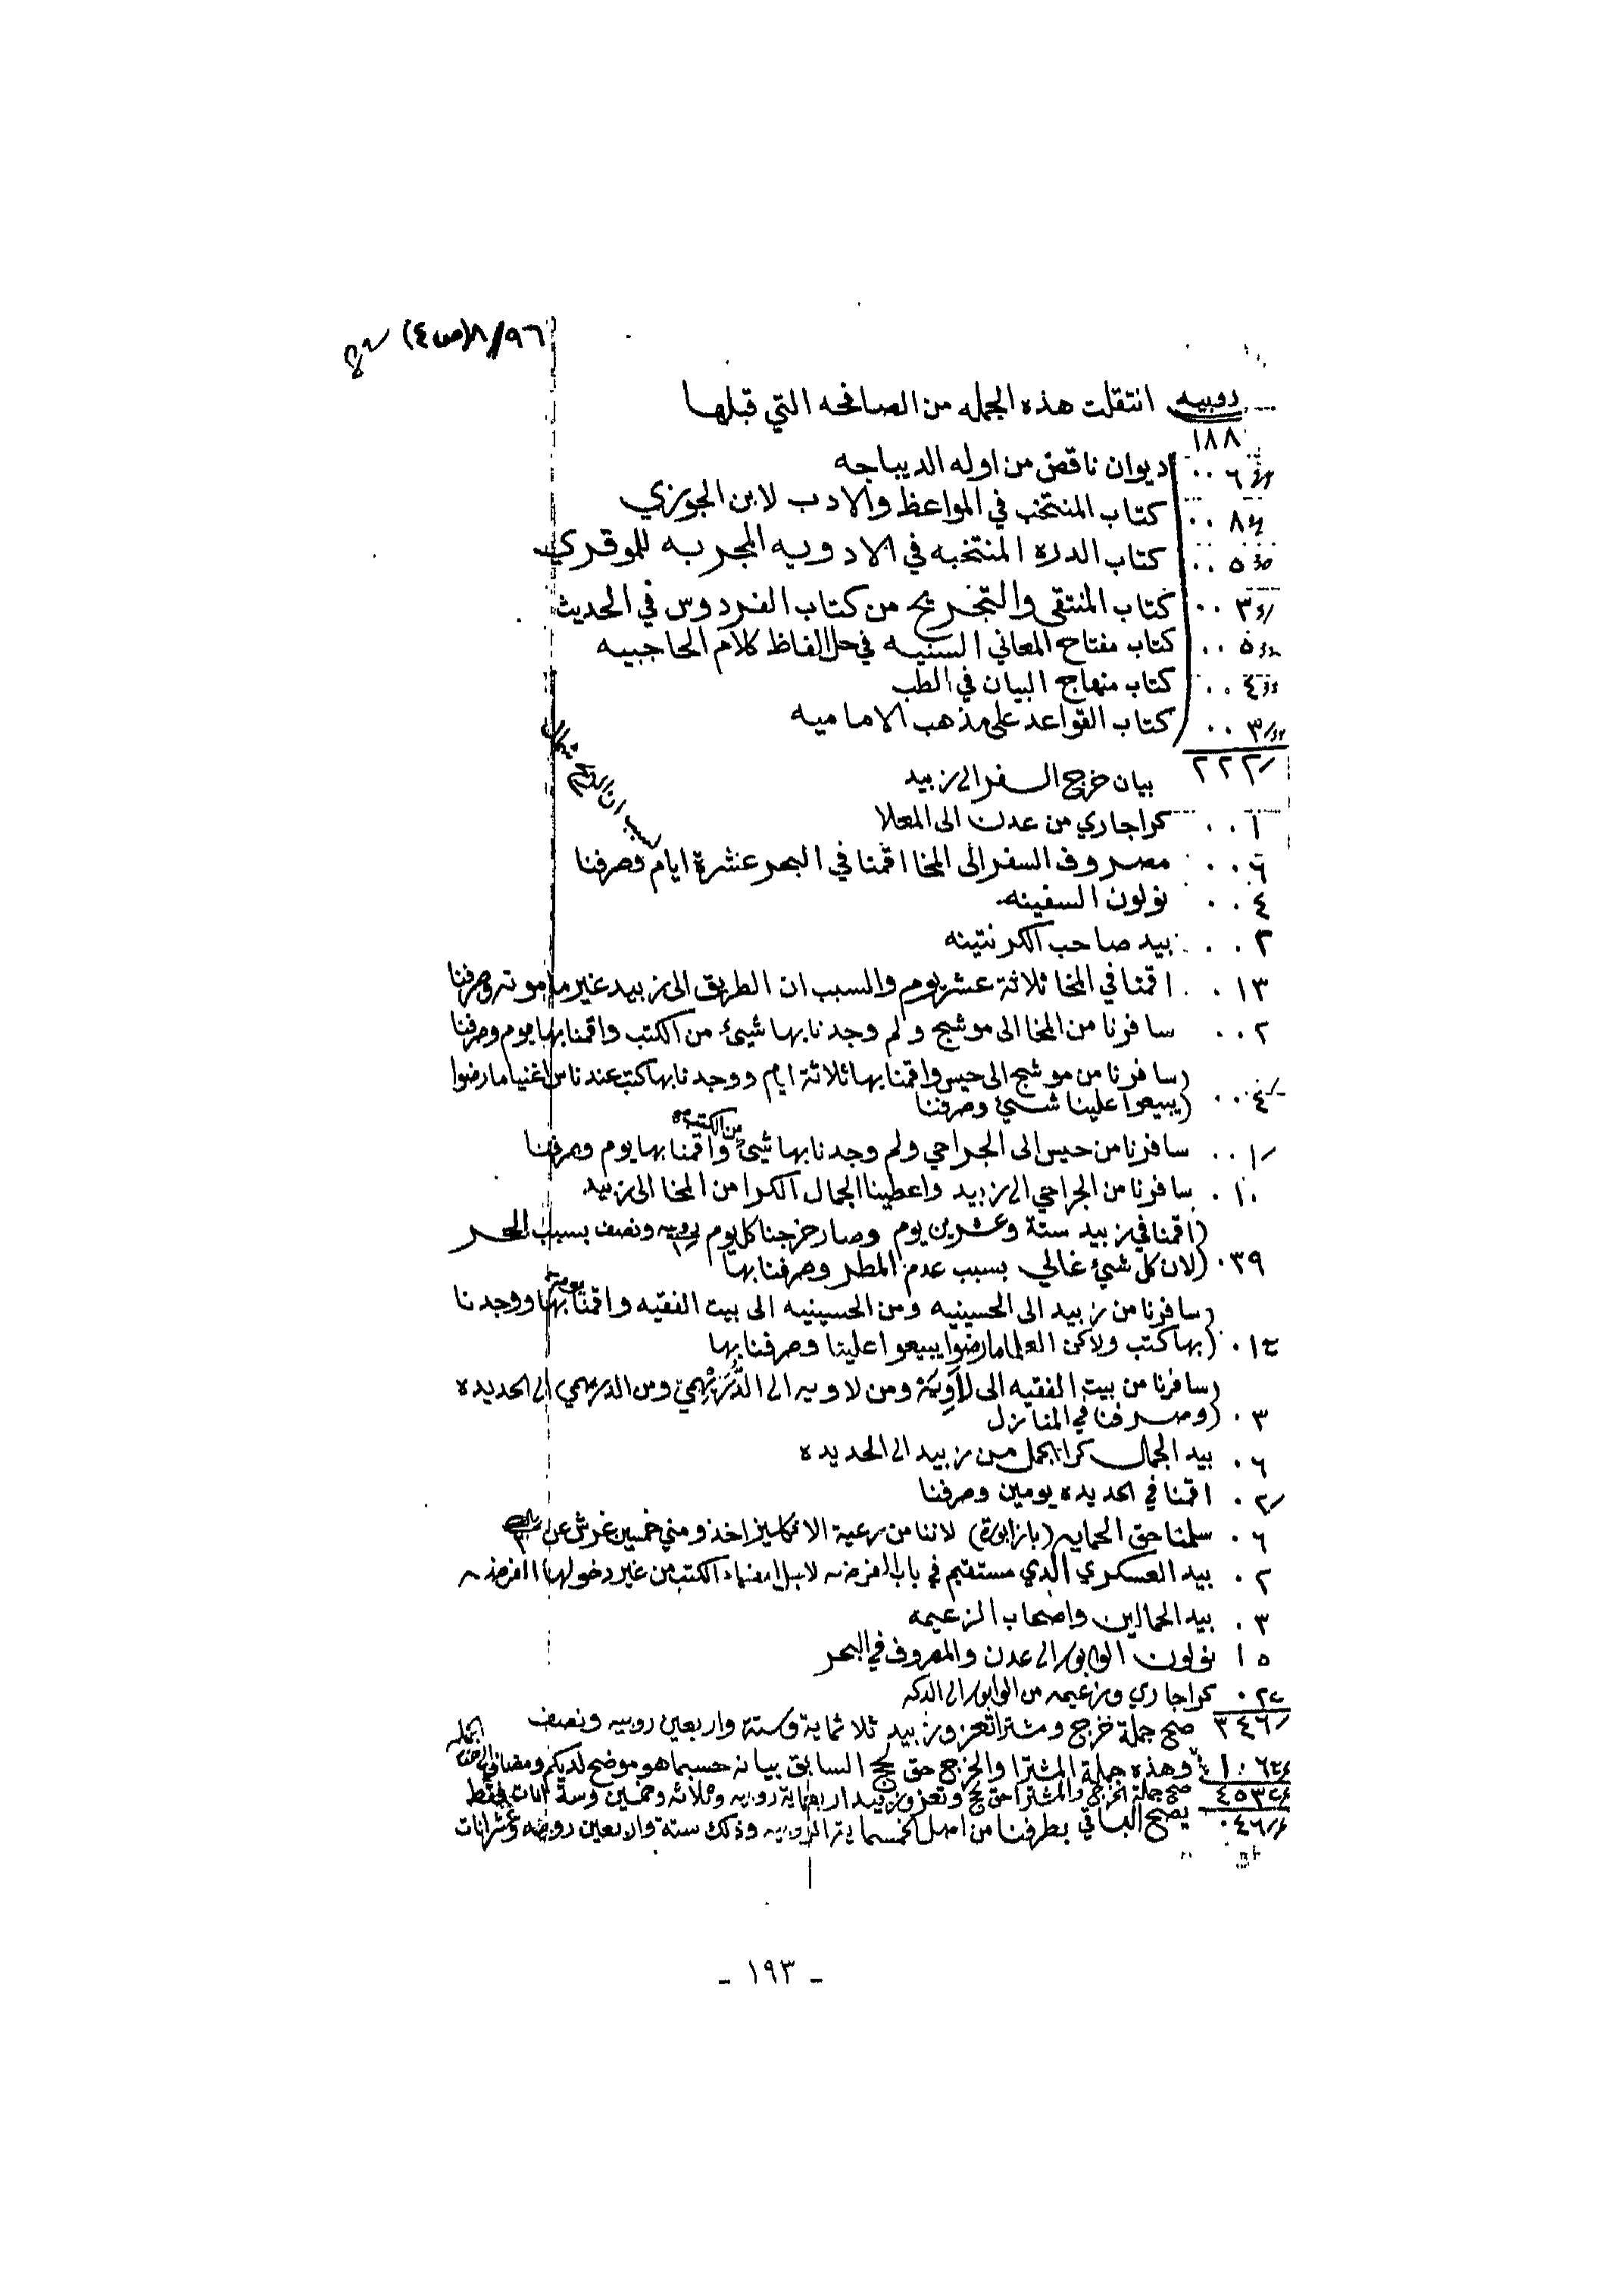 ٨/٩٦ (ص ٤)
روبيه انتقلت هذه الجمله من الصافحه التي قبلها
١٨٨
٦ ديوان ناقص من اوله الديباجه
٨ كتاب المنتخب في المواعظ والادب لابن الجوزي
٥ كتاب الدره المنتخبه في الادويه المجربه للموقري
٣ كتاب المنتقى والتخريج من كتاب الفردوس في الحديث
٥ كتاب مفتاح المعاني السنيه في حل الفاظ كلام الحاجبيه
٤ كتاب منهاج البيان في الطب
٣ كتاب القواعد على مذهب الاماميه
٢٢٢
بيان خرج السفر الى زبيد
١ كراجاري من عدن الى المعلا
٦ مصروف السفر الى المخا اقمنا في البحر عشرة ايام وصرفنا
بسبب ان الريح شمال
٤ نولون السفينه
٢ بيد صاحب الكرنتينه
١٣ اقمنا في المخا ثلاثة عشر يوم والسبب ان الطريق الى زبيد غير مامونه وصرفنا
٢ سافرنا من المخا الى موشج ولم وجدنا بها شيئ من الكتب واقمنا بها يوم وصرفنا
سافرنا من موشج الى حيس واقمنا بها ثلاثة ايام ووجدنا بها كتب عند ناس اغنيا مارضوا
٤ يبيعوا علينا شيئ وصرفنا
١ سافرنا من حيس الى الجراحي ولم وجدنا بها شيئ من الكتب واقمنا بها يوم وصرفنا
١٠ سافرنا من الجراحي الى زبيد واعطينا الجمال الكرا من المخا الى زبيد
اقمنا في زبيد ستة وعشرين يوم وصار خرجنا كل يوم روبيه ونصف بسبب الحر
٣٩ لان كل شيئ غالي بسبب عدم المطر وصرفنا بها
سافرنا من زبيد الى الحسينيه ومن الحسينيه الى بيت الفقيه واقمنا بها ووجدنا
بها كتب ولاكن العلما مارضوا يبيعوا علينا وصرفنا بها
سافرنا من بيت الفقيه الى لاويه ومن لاويه الى الدريهمي ومن الدريهمي الى الحديده
٣ وصرفنا في المنازل
٦ بيد الجمال كرا الجمل من زبيد الى الحديده
٢ اقمنا في الحديده يومين وصرفنا
٦ سلمنا حق الحمايه (بازابورة) لاننا من رعية الانكليز اخذو مني خمسين غرش عن
٢ بيد العسكري الذي مستقيم في باب الفرضه لاجل امضاء الكتب من غير دخولها الفرضه
٣ بيد الحمالين واصحاب الزعيمه
١٥ نولون الوابور الى عدن والمصروف في البحر
٢ كراجاري وزعيمه من الوابور الى الدكه
٣٤٦ صح جملة خرج ومشترا تعز وزبيد ثلاثماية وستة واربعين روبيه ونصف
١٠٦ وهذه جملة المشترا والخرج حق لحج السابق بيانه حسبما هو موضح لديكم
٤٥٣ صح جملة الخرج والمشترا حق لحج وتعز وزبيد اربعماية روبيه وثلاثه وخمسين وستة انات فقط
٤٦ يصح الباقي بطرفنا من اصل الخمسماية الروبيه وذلك ستة واربعين روبيه وعشر انات
- ١٩٣ -